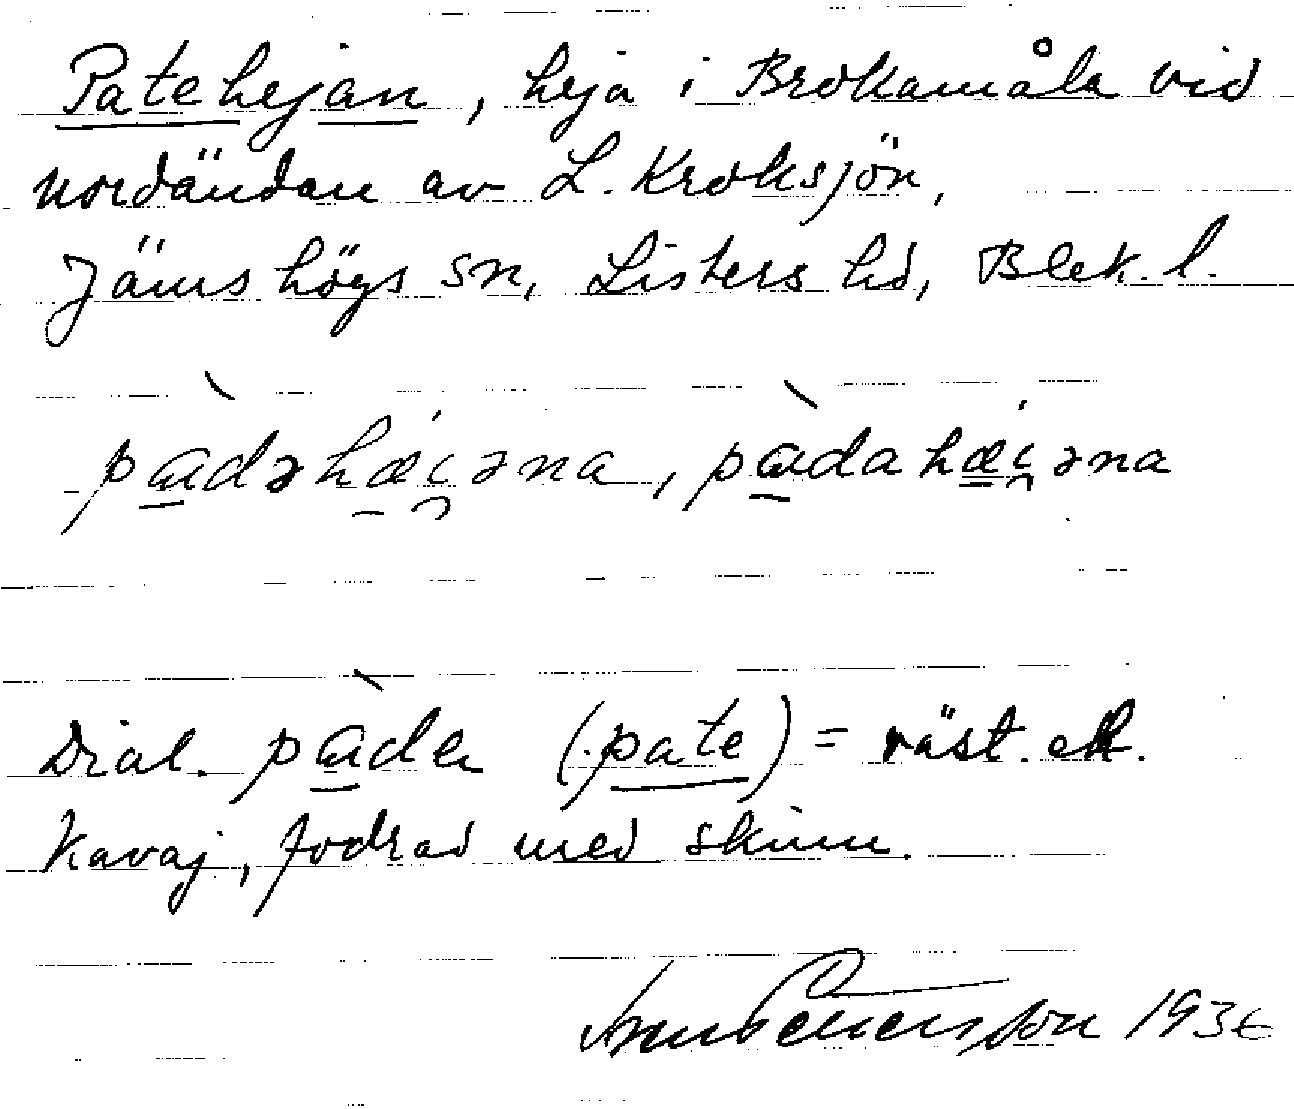 Patehejan, heja i Brokamåla vid
nordändan av L. Kroksjön,
Jämshögs sn, Listers hd, Blek. l.
pàdəhæi̯əna, pàdahæi̯əna
Dial. pàda (pate) = väst. ell.
Kavaj, fodrad med skinn.
1936